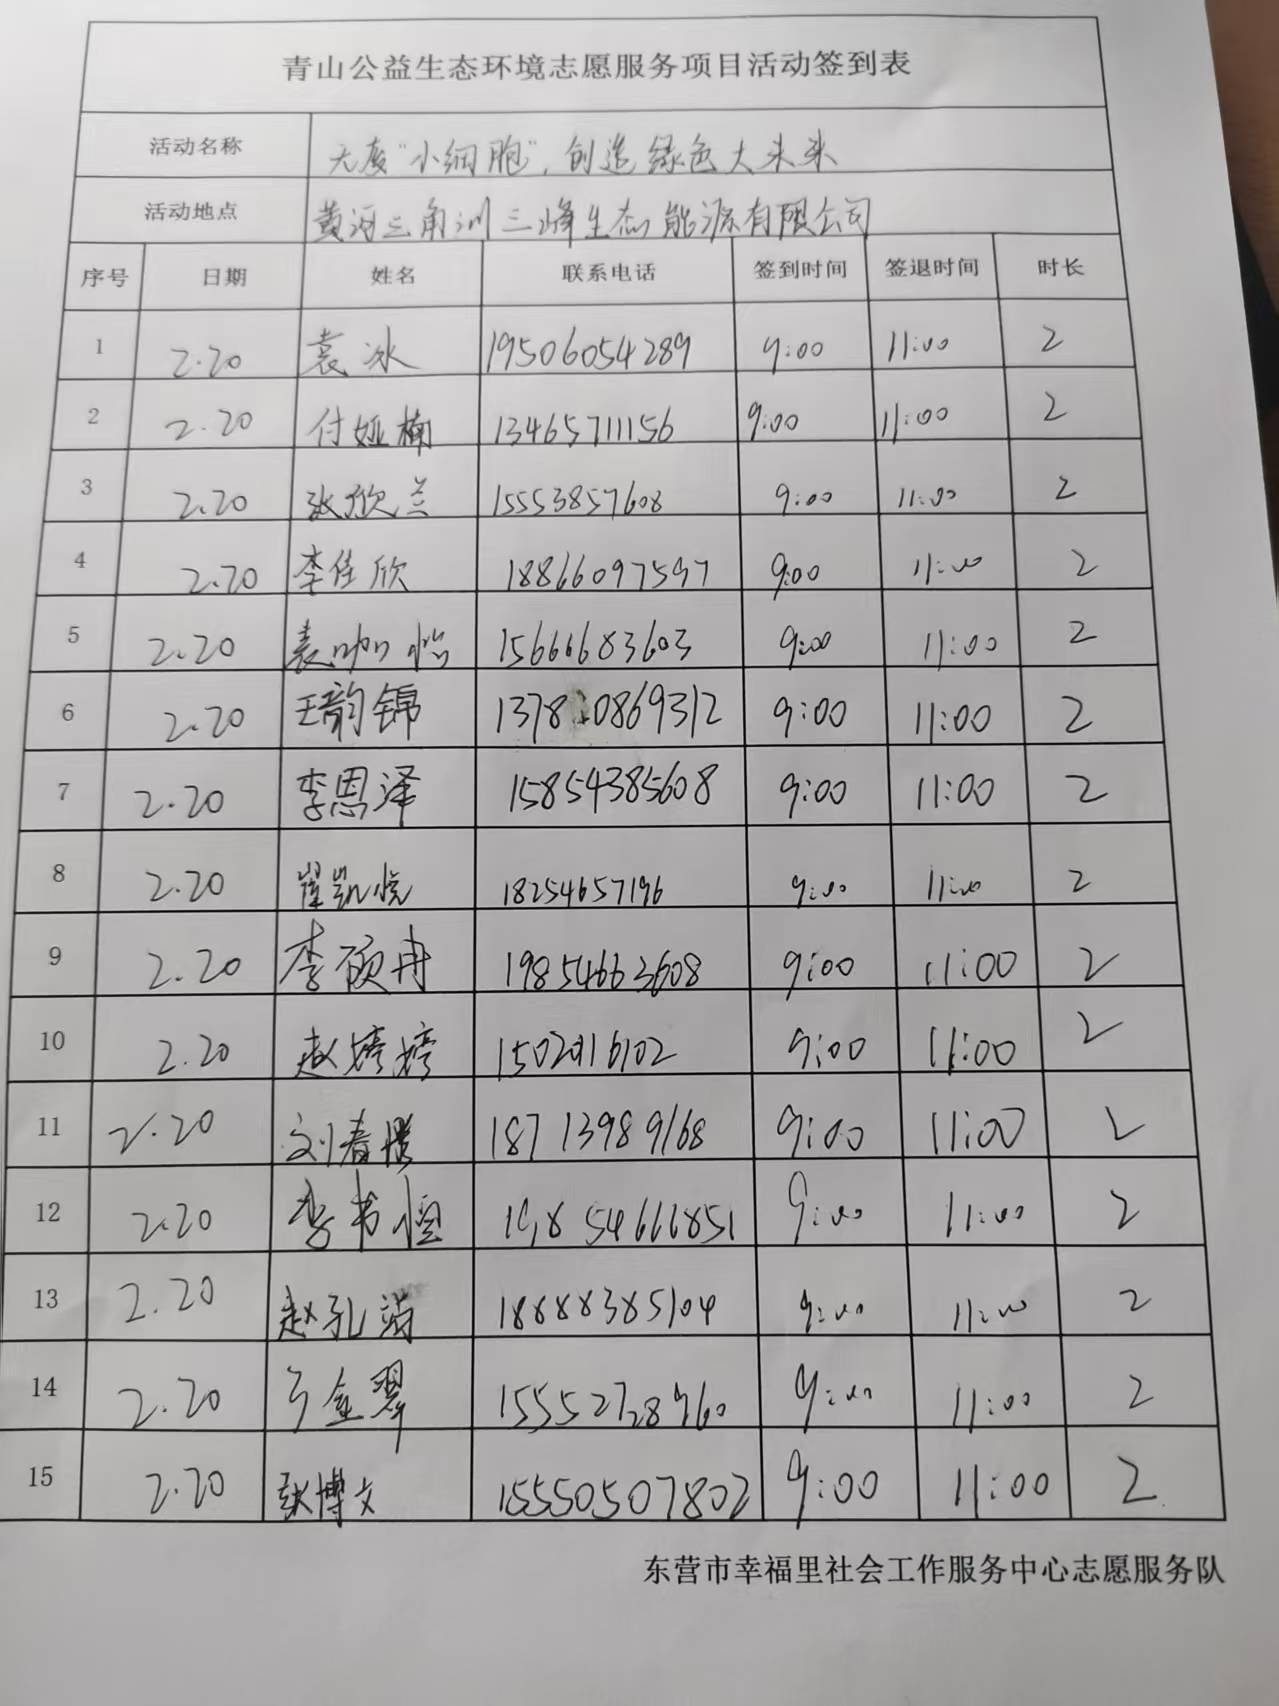 青山公益生态环境志愿服务项目活动签到表
活动名称 无废"小细胞"，创造绿色大未来
活动地点 黄河三角洲三峰生态能源有限公司
序号 日期 姓名 联系电话 签到时间 签退时间 时长
1 2.20 袁冰 19506054289 9:00 11:00 2
2 2.20 付娅楠 13465711156 9:00 11:00 2
3 2.20 张欣兰 15553857608 9:00 11:00 2
4 2.20 李佳欣 18866097597 9:00 11:00 2
5 2.20 袁咖怡 15666683603 9:00 11:00 2
6 2.20 王韵锦 13780869312 9:00 11:00 2
7 2.20 李恩泽 15854385608 9:00 11:00 2
8 2.20 崔凯悦 18254657196 9:00 11:00 2
9 2.20 李硕冉 19854663608 9:00 11:00 2
10 2.20 赵婷婷 9:00 11:00 2
11 2.20 刘春 18713989168 9:00 11:00 2
12 2.20 李书恒 19854666851 9:00 11:00 2
13 2.20 赵孔 18888385104 9:00 11:00 2
14 2.20 金翠 15552728960 9:00 11:00 2
15 2.20 张博文 15550507802 9:00 11:00 2
东营市幸福里社会工作服务中心志愿服务队